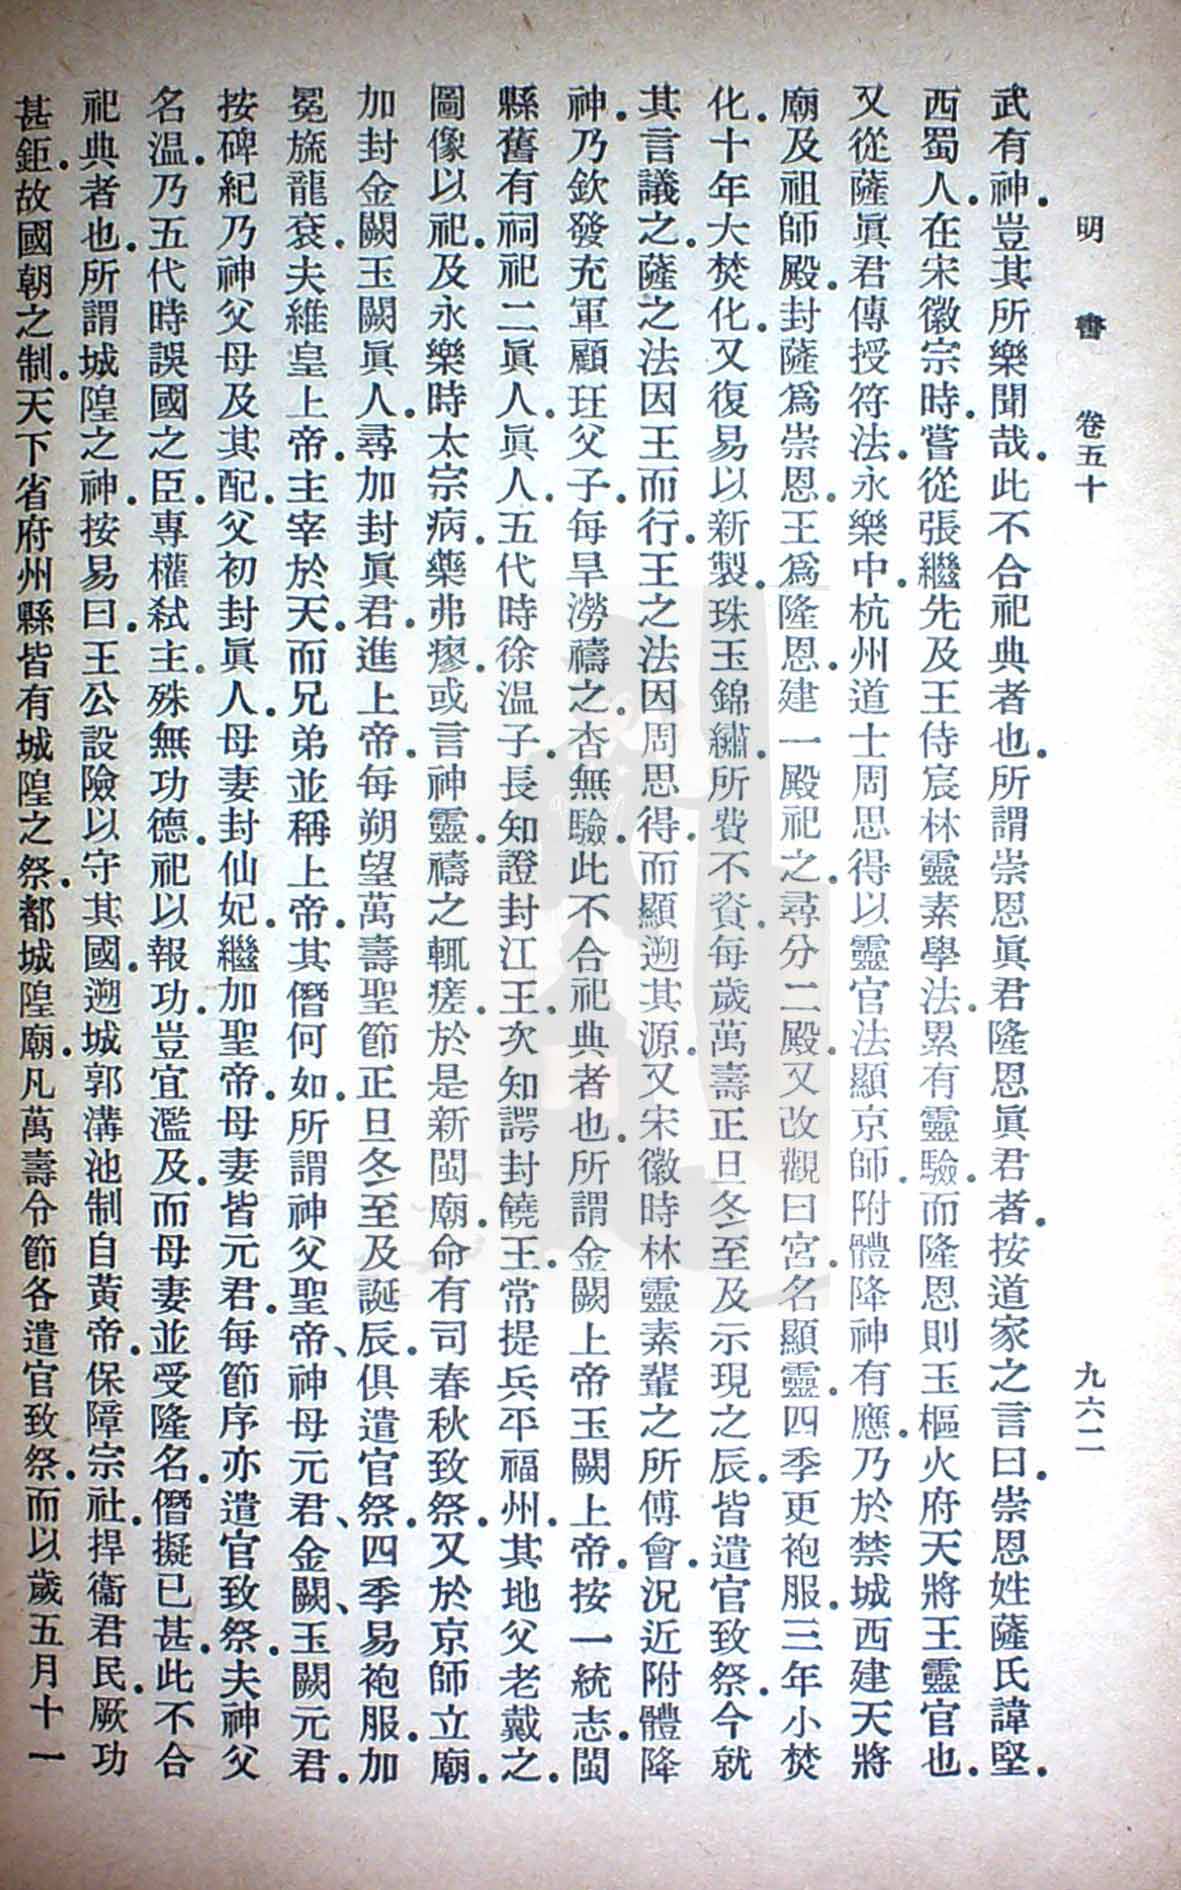 明書 卷五十 九六二
武有神．豈其所樂聞哉．此不合祀典者也．所謂崇恩眞君隆恩眞君者．按道家之言曰．崇恩姓薩氏諱堅．
西蜀人．在宋徽宗時．嘗從張繼先及王侍宸林靈素學法．累有靈驗．而隆恩則玉樞火府天將王靈官也．
又從薩眞君傳授符法．永樂中．杭州道士周思得以靈官法顯京師．附體降神有應．乃於禁城西建天將
廟及祖師殿．封薩爲崇恩．王爲隆恩．建一殿祀之．尋分二殿．又改觀曰宮．名顯靈．四季更袍服．三年小焚
化．十年大焚化．又復易以新製．珠玉錦繡．所費不貲．每歲萬壽正旦冬至及示現之辰．皆遣官致祭．今就
其言議之．薩之法因王而行．王之法因周思得．而顯遡其源．又宋徽時林靈素輩之所傅會．況近附體降
神．乃欽發充軍顧玒父子．每旱澇禱之．杳無驗．此不合祀典者也．所謂金闕上帝玉闕上帝．按一統志．閩
縣舊有祠祀二眞人．眞人．五代時徐溫子．長知證封江王．次知諤封饒王．常提兵平福州．其地父老戴之．
圖像以祀．及永樂時太宗病．藥弗瘳．或言神靈．禱之輒瘥．於是新閩廟．命有司春秋致祭．又於京師立廟．
加封金闕玉闕眞人．尋加封眞君．進上帝．每朔望萬壽聖節正旦冬至及誕辰．俱遣官祭．四季易袍服．加
冕旒龍袞．夫維皇上帝．主宰於天．而兄弟並稱上帝．其僭何如．所謂神父聖帝、神母元君、金闕、玉闕元君．
按碑紀乃神父母及其配．父初封眞人．母妻封仙妃．繼加聖帝．母妻皆元君．每節序亦遣官致祭．夫神父
名溫．乃五代時誤國之臣．專權弒主．殊無功德．祀以報功．豈宜濫及．而母妻並受隆名．僭擬已甚．此不合
祀典者也．所謂城隍之神．按易曰．王公設險以守其國．遡城郭溝池制自黃帝．保障宗社．捍衞君民．厥功
甚鉅．故國朝之制．天下省府州縣皆有城隍之祭．都城隍廟．凡萬壽令節各遣官致祭．而以歲五月十一